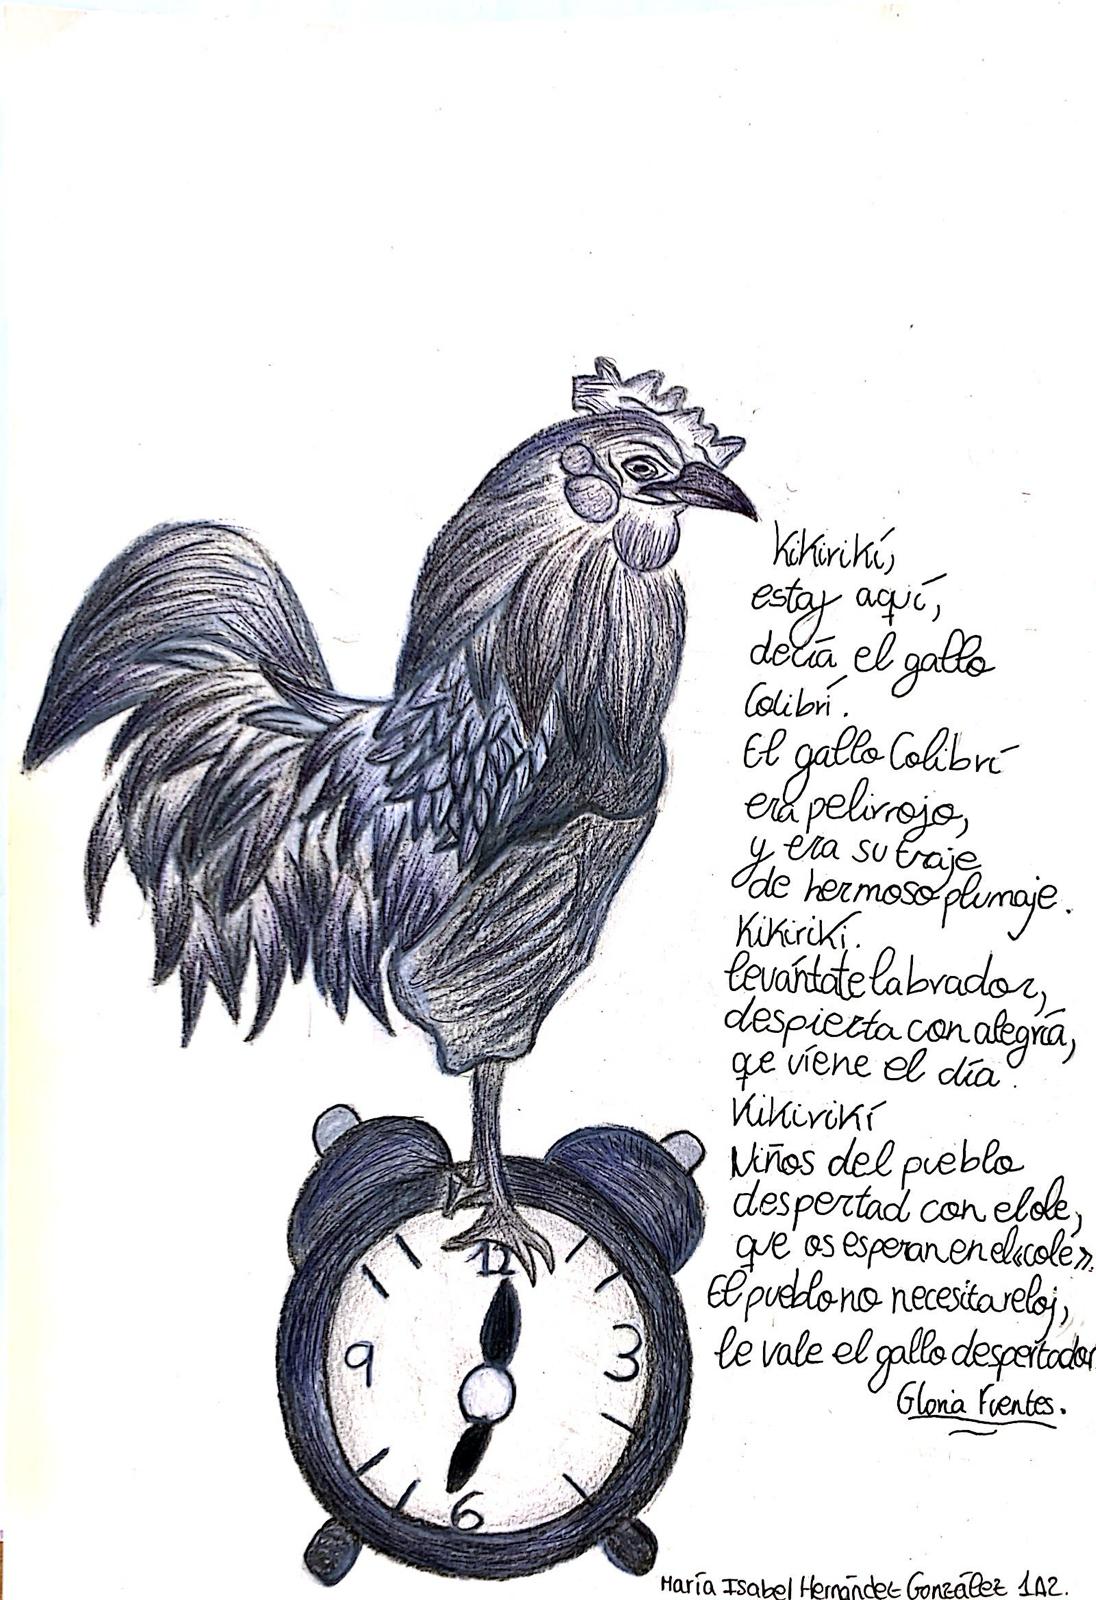 Kikirikí,
estoy aquí,
decía el gallo
Colibrí.
El gallo Colibrí
era pelirrojo,
y era su traje
de hermoso plumaje.
Kikirikí.
levántate labrador,
despierta con alegría,
que viene el día.
Kikirikí
Niños del pueblo
despertad con el ole,
que os esperan en el «cole».
El pueblo no necesita reloj,
le vale el gallo despertador
Gloria Fuentes.
12
9
3
6
María Isabel Hernández González 1A2.